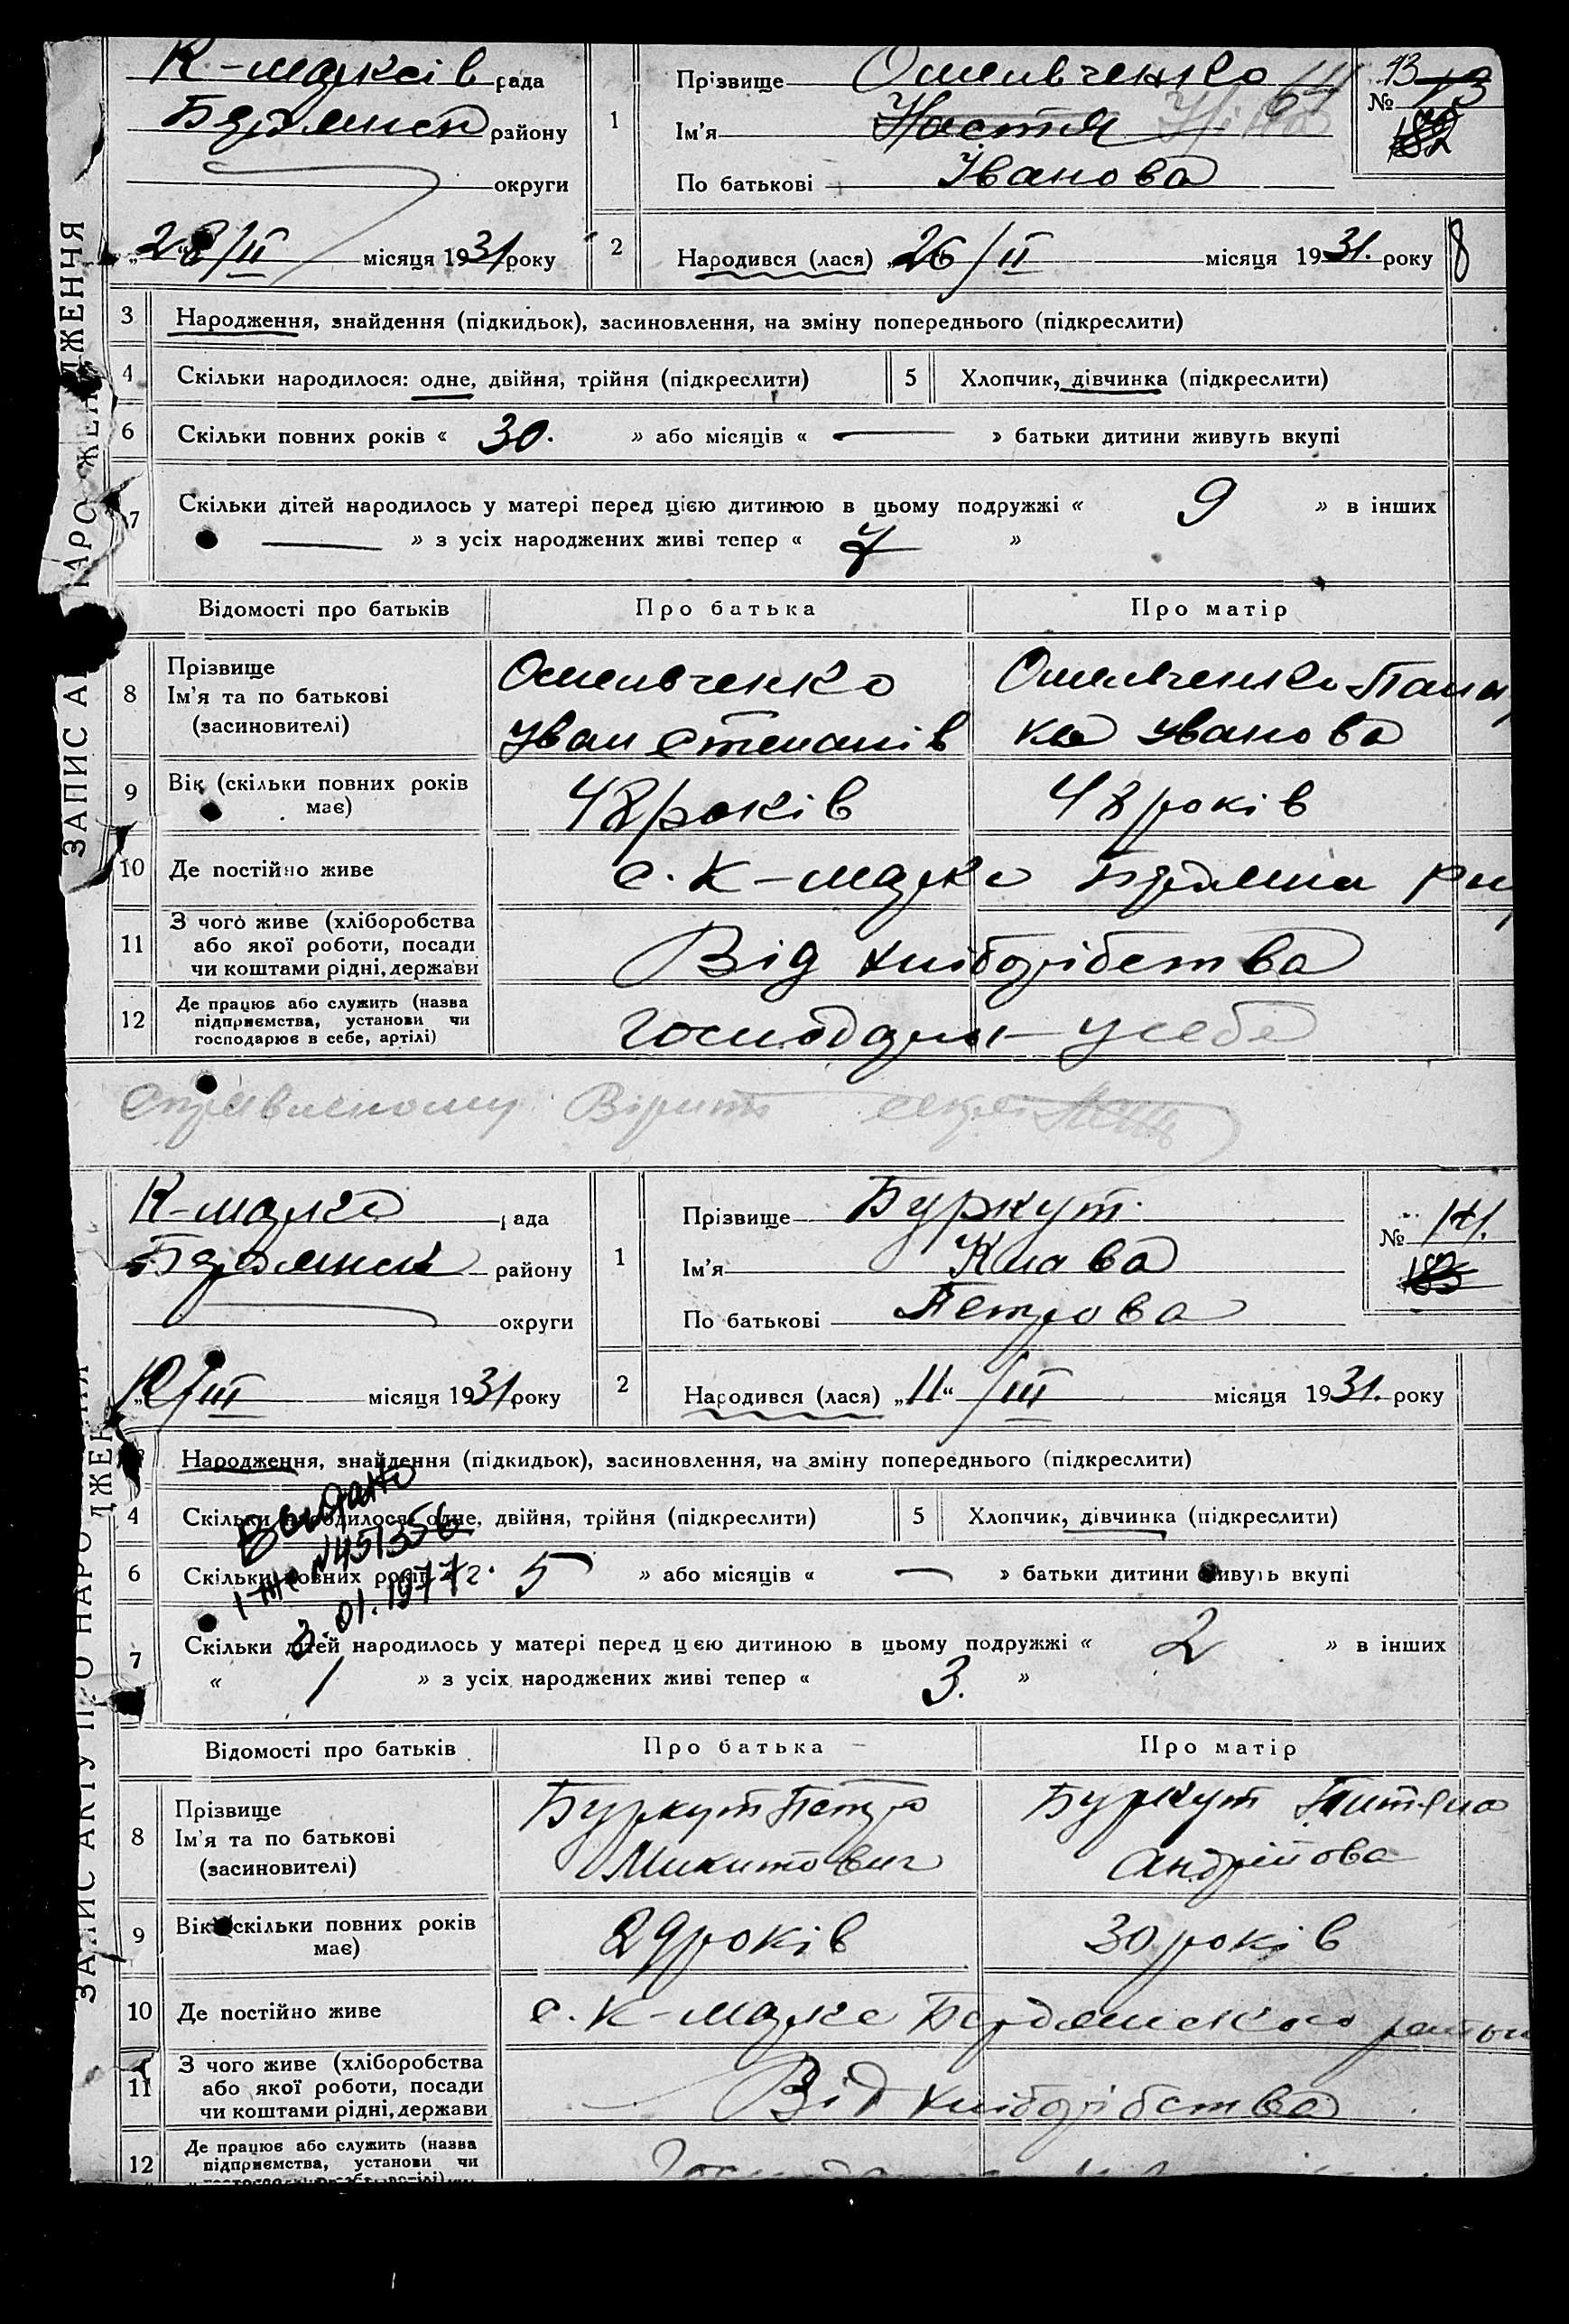 К-марксів рада
Бердянськ району
округи
„28/II місяця 1931 року
1
Прізвище Омельченко
Ім’я Настя
По батькові Іванова
№ 13
2
Народився (лася) „26/II місяця 1931. року
8
3 Народження, знайдення (підкидьок), засиновлення, на зміну попереднього (підкреслити)
4 Скільки народилося: одне, двійня, трійня (підкреслити)
5 Хлопчик, дівчинка (підкреслити)
6 Скільки повних років « 30. » або місяців « — » батьки дитини живуть вкупі
7 Скільки дітей народилось у матері перед цією дитиною в цьому подружжі « 9 » в інших
— » з усіх народжених живі тепер « 7 »
Відомості про батьків
Про батька
Про матір
8
Прізвище
Ім’я та по батькові
(засиновителі)
Омельченко
Іван Степанів
Омельченко
Іванова
9
Вік (скільки повних років
має)
48 років
48 років
10 Де постійно живе
с. К-маркс
11
З чого живе (хліборобства
або якої роботи, посади
чи коштами рідні, держави
Від хліборібства
12
Де працює або служить (назва
підприємства, установи чи
господарює в себе, артілі)
у себе
ЗАПИС А
К-маркс рада
Бердянськ району
округи
/III місяця 1931 року
1
Прізвище Буркут
Ім’я Клава
По батькові Петрова
№ 14.
2
Народився (лася) „11“/III місяця 1931. року
Народження, знайдення (підкидьок), засиновлення, на зміну попереднього (підкреслити)
4 Скільки народилося: одне, двійня, трійня (підкреслити)
5 Хлопчик, дівчинка (підкреслити)
6 Скільки повних років 5 » або місяців « — » батьки дитини живуть вкупі
7 Скільки дітей народилось у матері перед цією дитиною в цьому подружжі « 2 » в інших
« 1 » з усіх народжених живі тепер « 3. »
№ 451356
3.01.1977г.
Відомості про батьків
Про батька
Про матір
8
Прізвище
Ім’я та по батькові
(засиновителі)
Буркут Петро
Микитович
Буркут
Андрійова
9
Вік (скільки повних років
має)
29 років
30 років
10 Де постійно живе
с. К-маркс Бердянського
11
З чого живе (хліборобства
або якої роботи, посади
чи коштами рідні, держави
Від хліборібства
12
Де працює або служить (назва
підприємства, установи чи
ЗАПИС АКТУ ПРО НАРОДЖЕННЯ